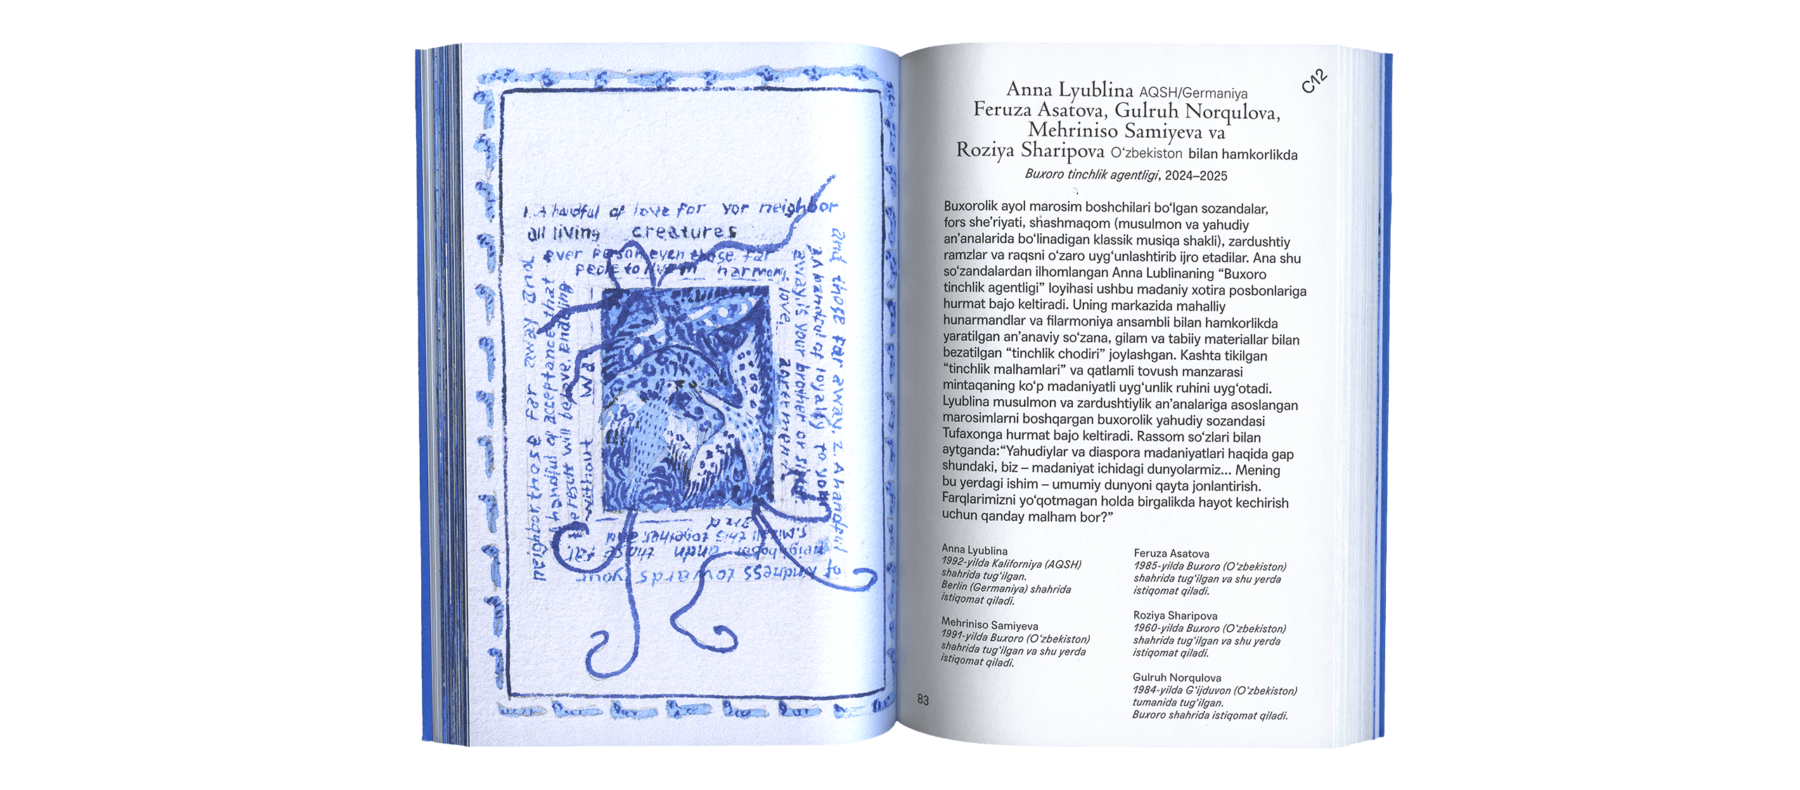 1. A handful of love for yor neighbor
all living creatures
ever person even those far
people to live in harmony
and those far away. 2. A handful
of kindness towards your
neighbor
an handful of loyalty to your
away, is your brother or sister.
love,
agreement
neighbor, those far away and
handful of acceptance that
the result will be love ending
without
wa
s. mix all this together, and
and
C12
Anna Lyublina AQSH/Germaniya
Feruza Asatova, Gulruh Norqulova,
Mehriniso Samiyeva va
Roziya Sharipova Oʻzbekiston bilan hamkorlikda
Buxoro tinchlik agentligi, 2024–2025
Buxorolik ayol marosim boshchilari boʻlgan sozandalar,
fors sheʼriyati, shashmaqom (musulmon va yahudiy
anʼanalarida boʻlinadigan klassik musiqa shakli), zardushtiy
ramzlar va raqsni oʻzaro uygʻunlashtirib ijro etadilar. Ana shu
soʻzandalardan ilhomlangan Anna Lublinaning “Buxoro
tinchlik agentligi” loyihasi ushbu madaniy xotira posbonlariga
hurmat bajo keltiradi. Uning markazida mahalliy
hunarmandlar va filarmoniya ansambli bilan hamkorlikda
yaratilgan anʼanaviy soʻzana, gilam va tabiiy materiallar bilan
bezatilgan “tinchlik chodiri” joylashgan. Kashta tikilgan
“tinchlik malhamlari” va qatlamli tovush manzarasi
mintaqaning koʻp madaniyatli uygʻunlik ruhini uygʻotadi.
Lyublina musulmon va zardushtiylik anʼanalariga asoslangan
marosimlarni boshqargan buxorolik yahudiy sozandasi
Tufaxonga hurmat bajo keltiradi. Rassom soʻzlari bilan
aytganda:“Yahudiylar va diaspora madaniyatlari haqida gap
shundaki, biz – madaniyat ichidagi dunyolarmiz... Mening
bu yerdagi ishim – umumiy dunyoni qayta jonlantirish.
Farqlarimizni yoʻqotmagan holda birgalikda hayot kechirish
uchun qanday malham bor?”
Anna Lyublina
1992-yilda Kaliforniya (AQSH)
shahrida tugʻilgan.
Berlin (Germaniya) shahrida
istiqomat qiladi.
Mehriniso Samiyeva
1991-yilda Buxoro (Oʻzbekiston)
shahrida tugʻilgan va shu yerda
istiqomat qiladi.
Feruza Asatova
1985-yilda Buxoro (Oʻzbekiston)
shahrida tugʻilgan va shu yerda
istiqomat qiladi.
Roziya Sharipova
1960-yilda Buxoro (Oʻzbekiston)
shahrida tugʻilgan va shu yerda
istiqomat qiladi.
Gulruh Norqulova
1984-yilda Gʻijduvon (Oʻzbekiston)
tumanida tugʻilgan.
Buxoro shahrida istiqomat qiladi.
83